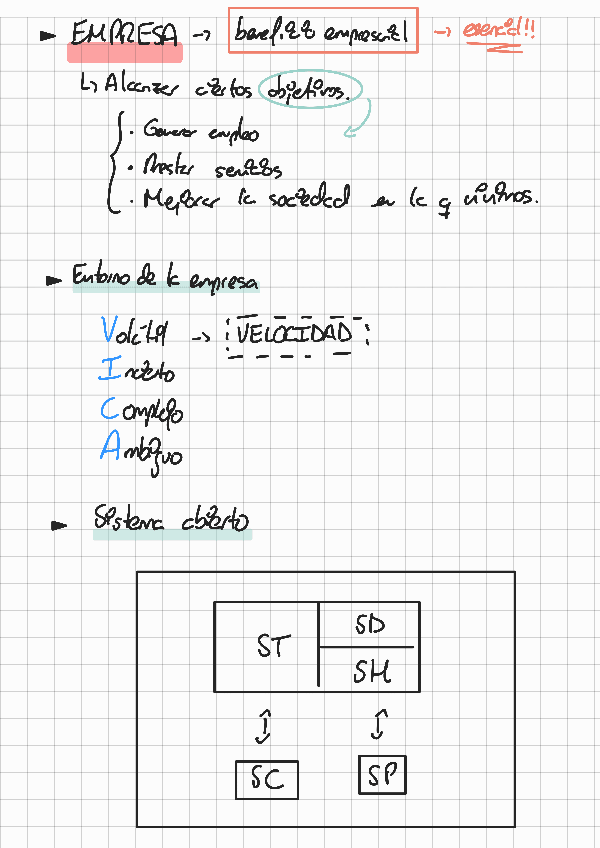 ► EMPRESA → beneficio empresarial → esencial!!
↳ Alcanzar ciertos objetivos.
· Generar empleo
· Prestar servicios
· Mejorar la sociedad en la q vivimos.
► Entorno de la empresa
Volátil → VELOCIDAD
Incierto
Complejo
Ambiguo
► Sistema abierto
ST SD
SH
SC SP